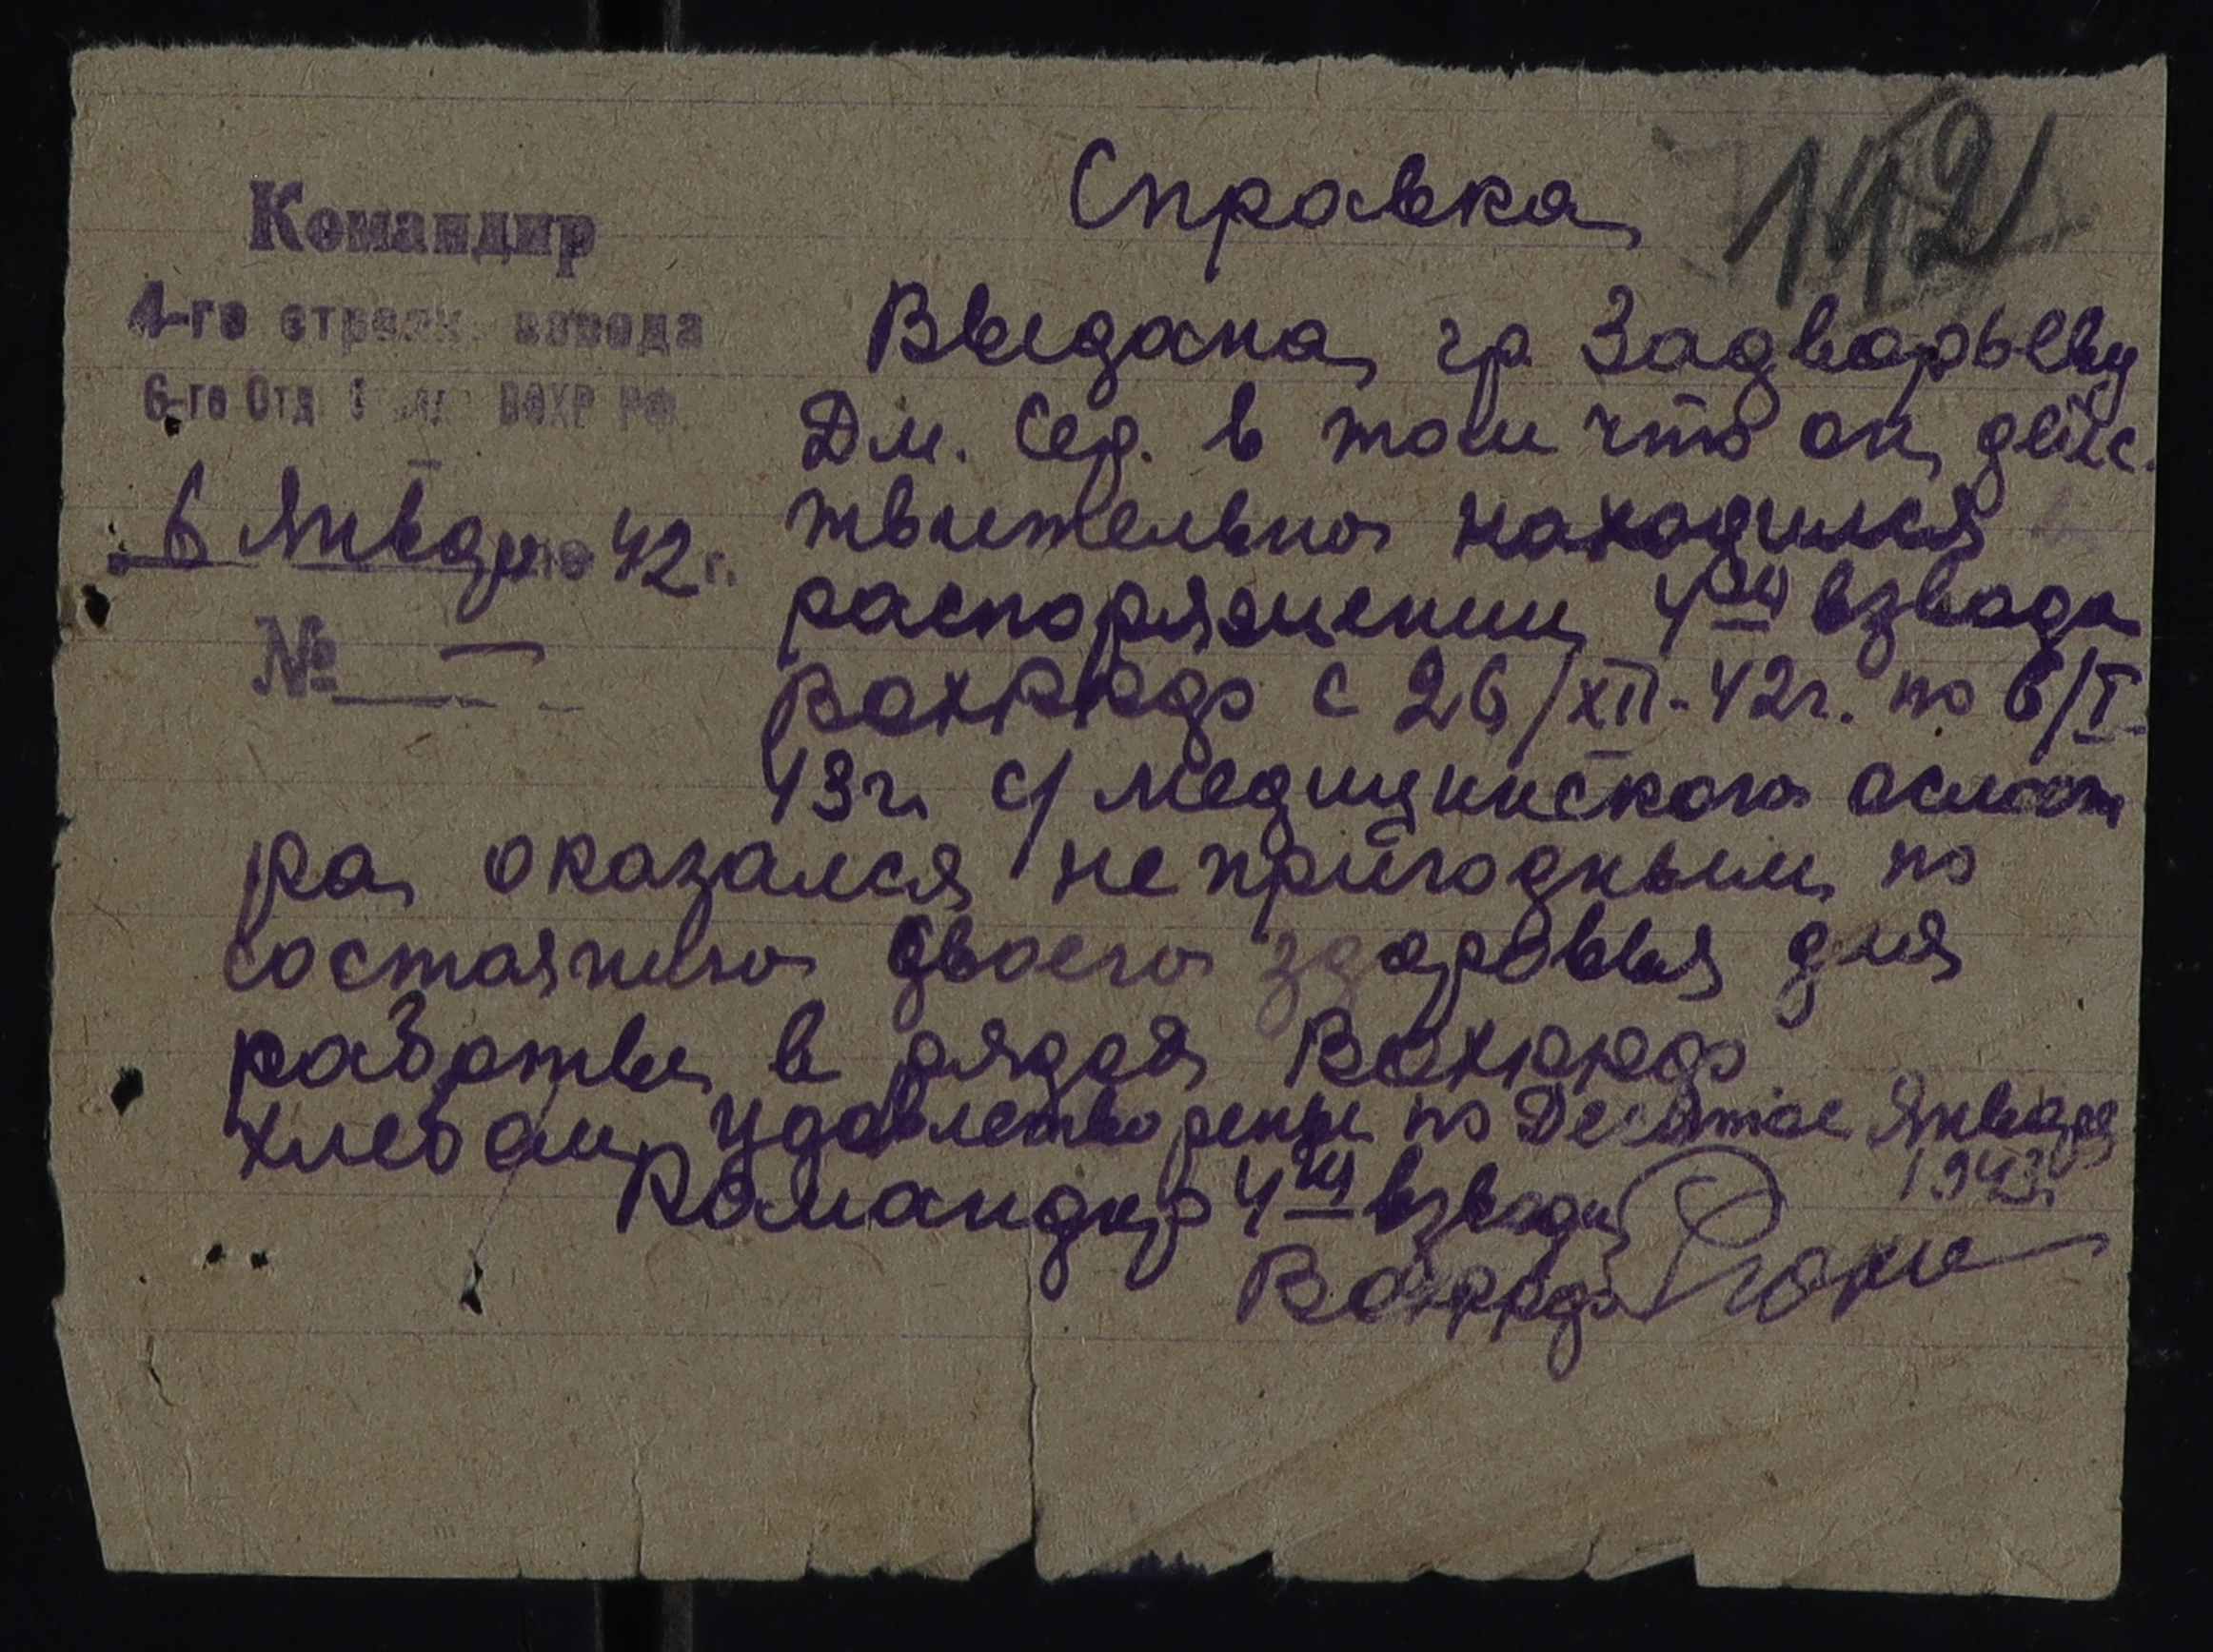 Справка
192
Командир
4-го стрелк. взвода
6-го Отд ВОХР РФ.
6 Января 42 г.
№
Выдана гр Задворьеву
Дм. Сер. в том что он дейс.
твительно находился в
распоряжении 4го взвода
с 26/XII-42г. по 6/I-
43г. с/ медицинского осмот
ра оказался непригодным по
состоянию своего здоровья для
работы в рядоя
хлебом удовлетворены по Десятое Января
1943г.
Командир 4го взвода